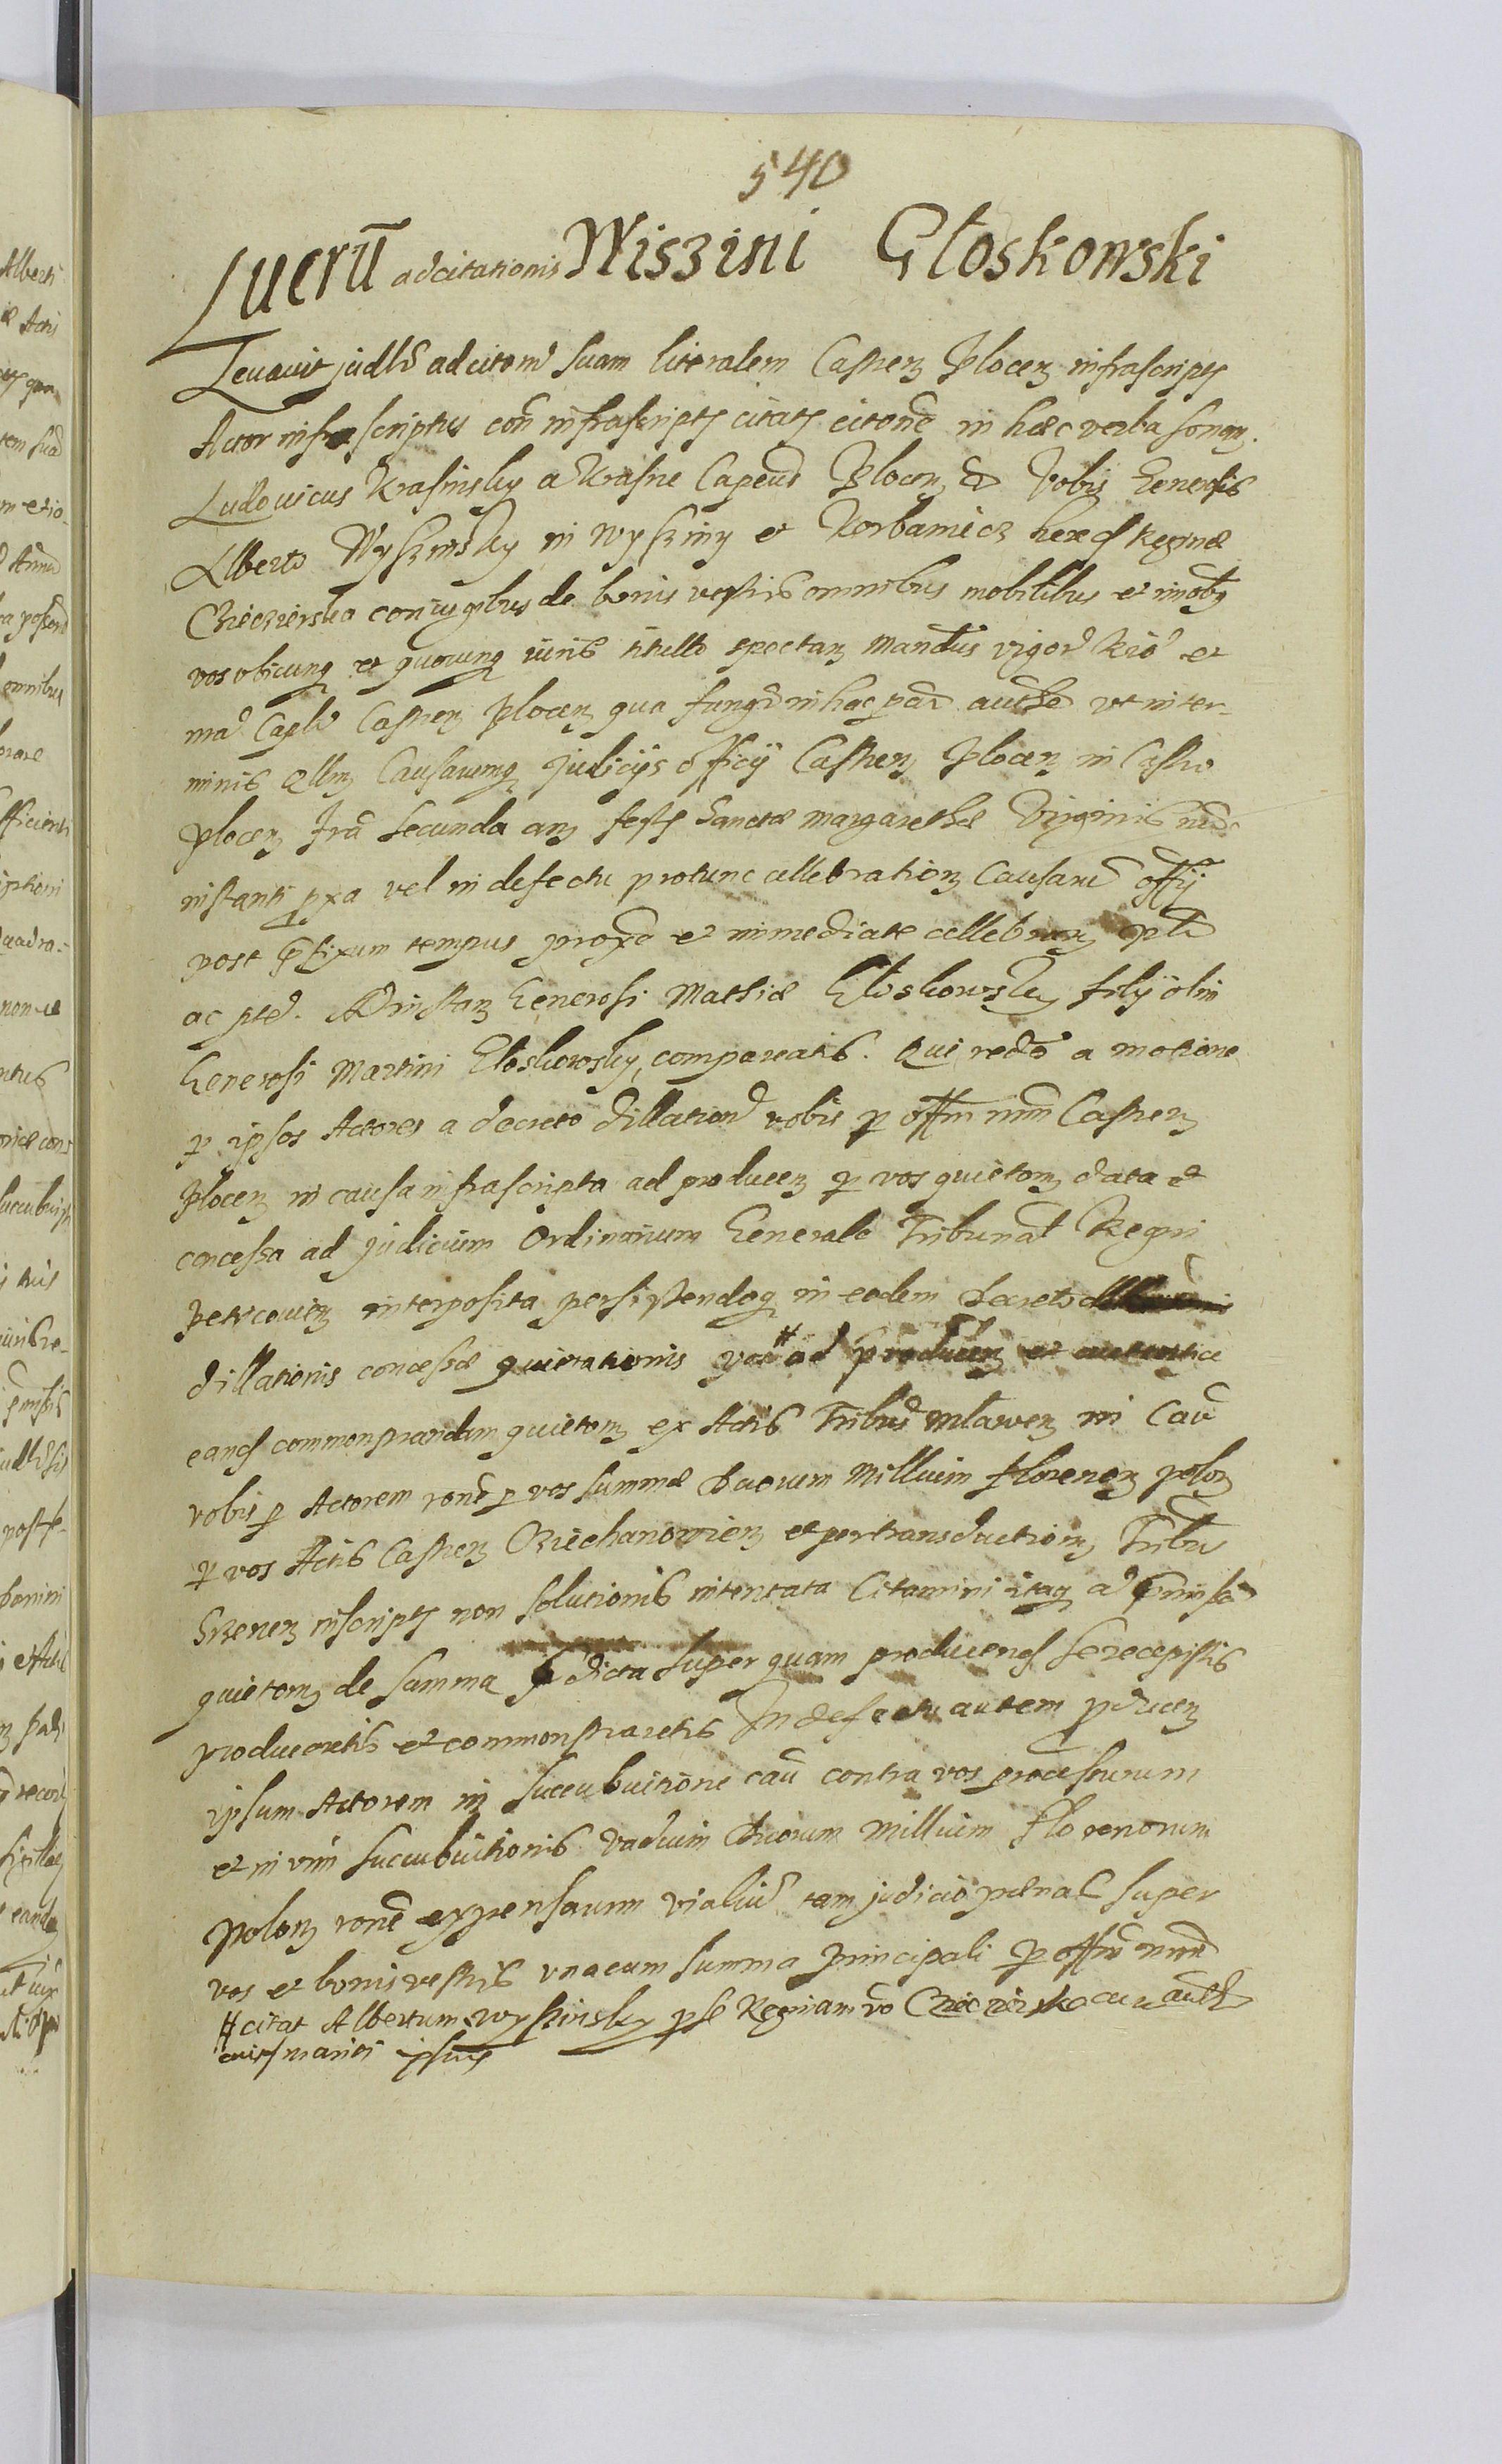 540
Lucrū adcitationis Wiszini Głoskowski
Levavit judł adcitom suam literalem Castren Plocen infrascript
Actor infrascriptus con infrascript citat citone in hæc verba sonan.
Ludovicus Krasinsky a Krasne Capeus Plocen & Vobis Generosis
Alberto Wyszinsky in wysziny et Korbaniecz hered Reginæ
coniugibus de bonis vestris omnibus mobilibus et imob
vos obicunq et quocunq iuris titullo spectan mandus vigore Rio et
mea Caplī Castren Plocen qua fungor in hac parte authe ut in ter-
minis Causarumq Judicijs officij Castren Plocen in Castro
Plocen fra secunda an fest Sanctæ Margarethæ Virginis
instanti pxa vel in defectu protunc cellebration Causaru offij
post pfixum tempus proxe et immediate cellebran
ac pte. Ad instan Generosi Mathiæ Głoskowsky filij olim
Generosi Martini Głoskowsky, compareatis. Qui a motione
p ipsos Actores a decreto dillation vobis p offm nrm Castren
Plocen in causa infrascripta ad producen p vos quietom data et
concessa ad judicium Ordinarium Generale Tribunal Regni
Petricovien interposita persistendoq in eodem Decreto
dillationis concessæ quietationis vos # ad producen et autentice
eand commonstrandum quietom ex Actis Tribus Mlawen in Cau
vobis p Actorem rone p vos summæ Duorum Millium florenon polon
p vos Actis Castren Cziechanovien et per transduction
Szrenen inscript non solutionis intentata Citamini itaq ad pmissa
quietom de summa pdicta super quam producend se recepistis
producaretis et commonstraretis In defectu autem pducen
ipsum Actorem in succubuitione cau contra vos processurum
et in vim succubuitionis vadium Duorum Millium florenorum
polon rone expensarum vialiu tam judicio pænal super
vos et bonis vestris una cum summa principali p offm nrm
# citat Albertum wyszinsky pse Reginam vo cu auth
mariti ipsius